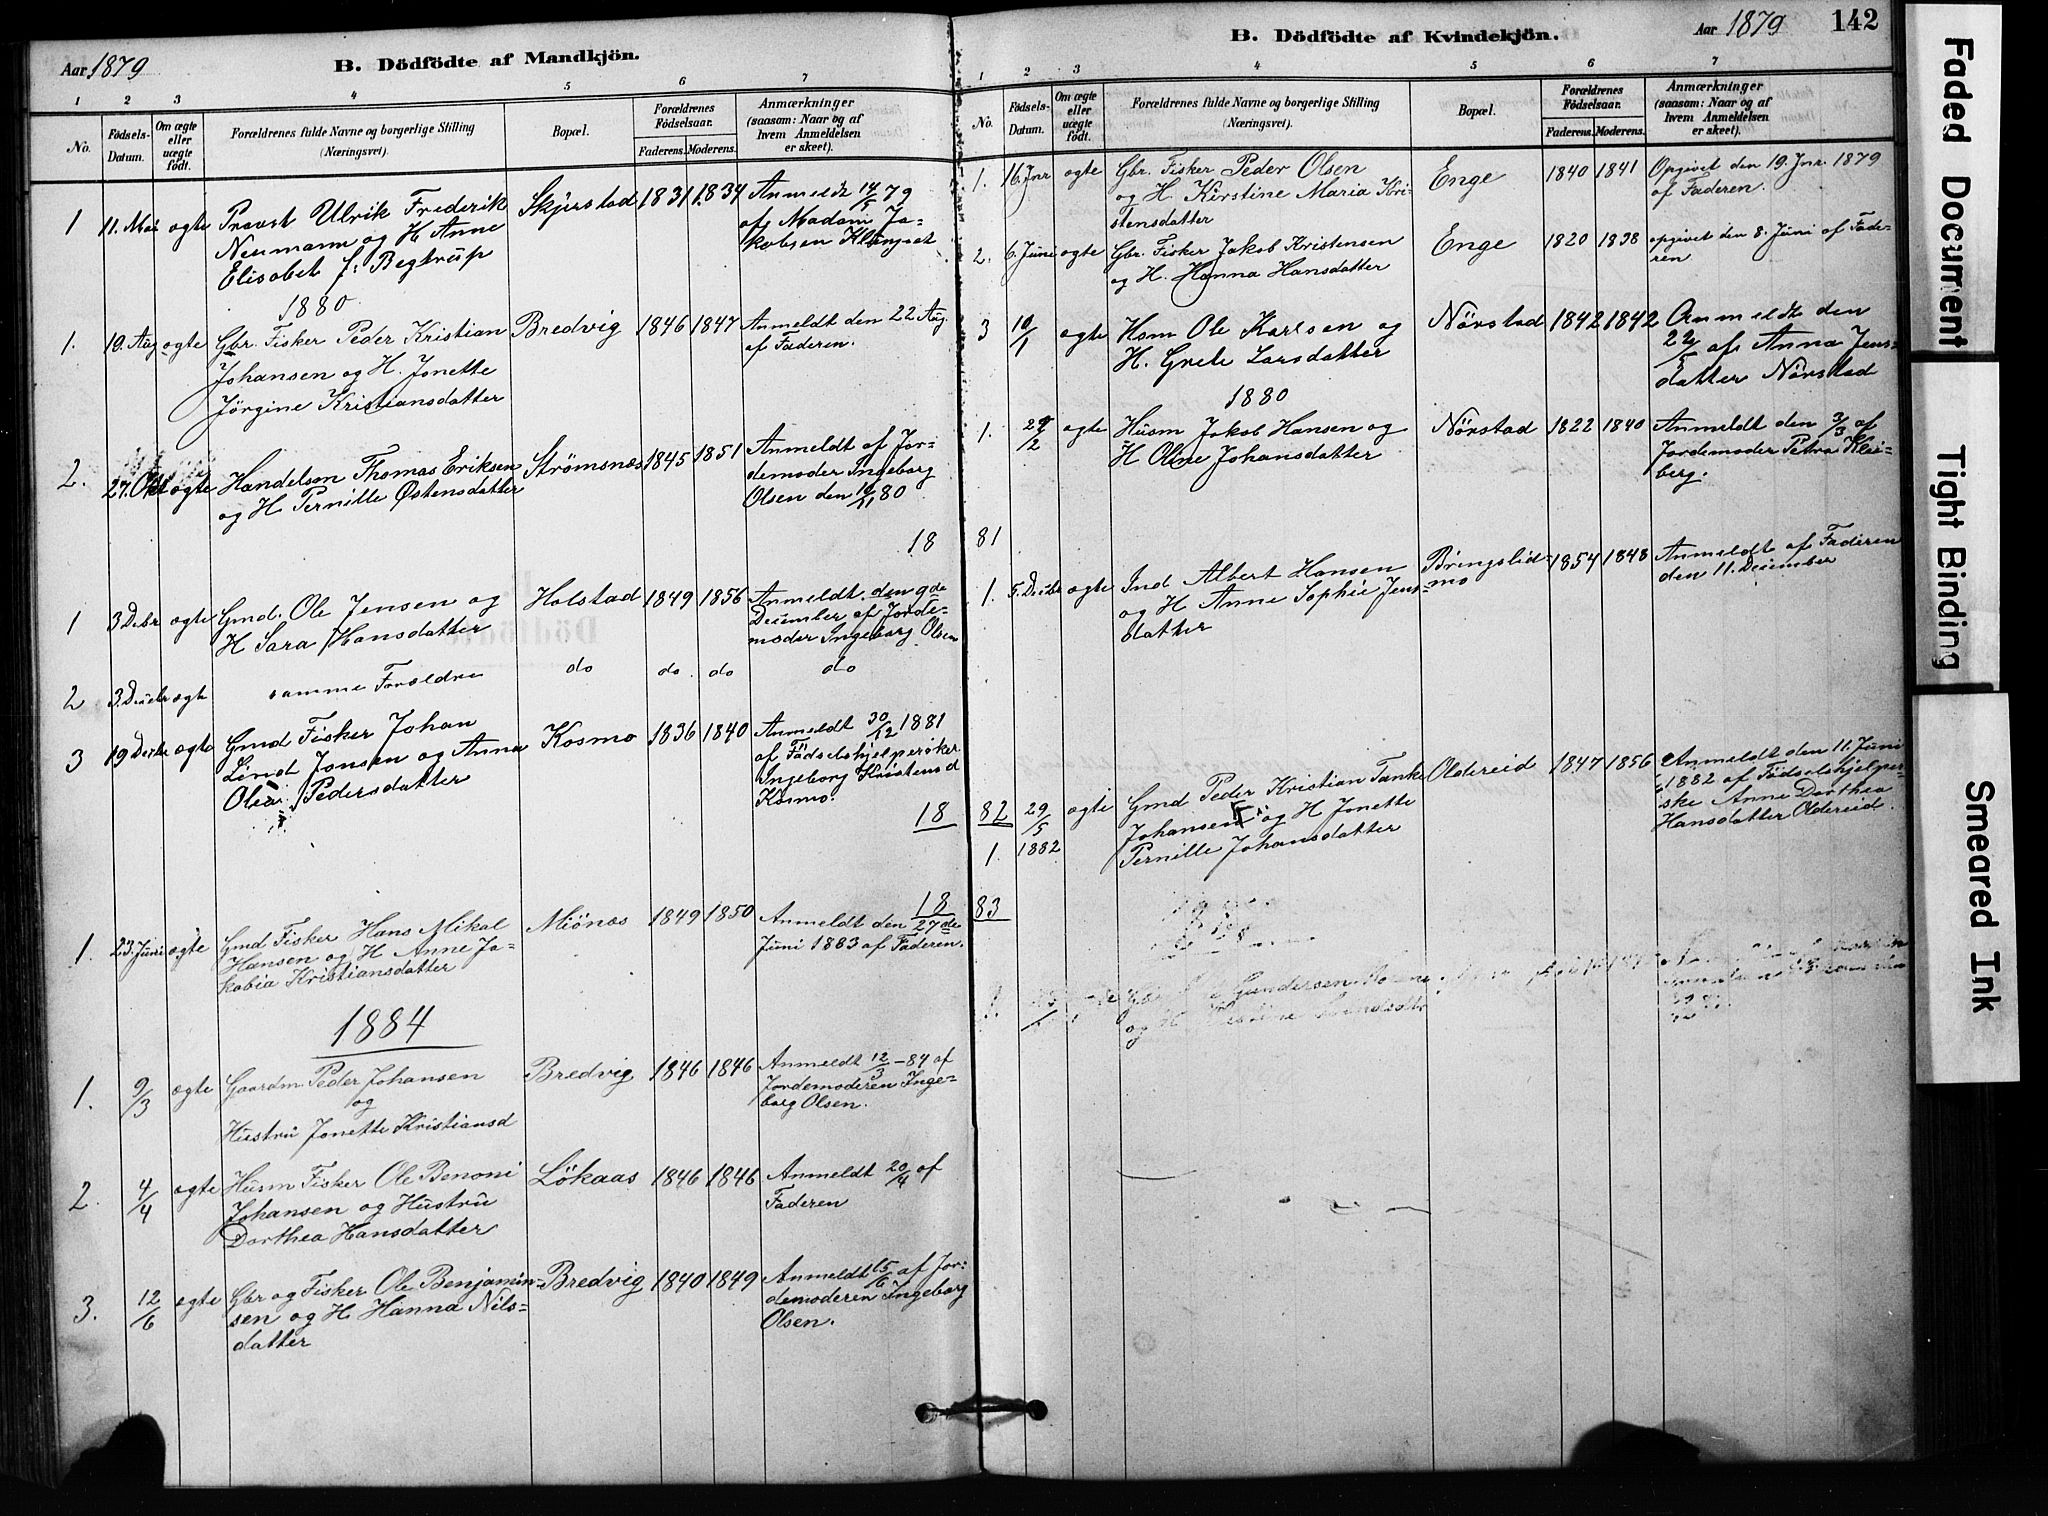 Aar 1879
B. Dödfödte af Mandkjön.
1 2 3 4 5 6 7
No.
Födsels-
Datum.
Om ægte
eller
uægte
födt.
Forældrenes fulde Navne og borgerlige Stilling
(Næringsvei).
Bopæl.
Forældrenes
Födselsaar.
Faderens. Moderens.
Anmærkninger
(saasom: Naar og af
hvem Anmeldelsen
er skeet).
1 11. Mai ægte Provst Ulrik Frederik Skjerstad 1831 1834 Anmeldt 14/5 79
Neumann og H Anne af Madam Ja-
Elisabet f: Begtrup kobsen Klungset
1880
1. 19. Aug ægte Gbr. Fisker Peder Kristian Bredvig 1846 1847 Anmeldt den 22 Aug.
Johansen og H. Jonette af Faderen.
Jörgine Kristiansdatter
2. 27. Okt ægte Handelsm Thomas Eriksen Strömsnæs 1845 1851 Anmeldt af Jor-
og H Pernille Østensdatter demoder Ingeborg
Olsen den 10/11 80
18
1 3 Decbr ægte Gmd. Ole Jensen og Holstad 1849 1856 Anmeldt den 9de
H Sara Hansdatter December af Jorde-
moder Ingeborg Olsen
2 3. Decbr ægte samme Forældre do do. do do
3 19 Decbr ægte Gmd Fisker Johan Kosmo 1836 1840 Anmeldt 30/12 1881
Lind Jonsen og Anna af Födselshjelperske
Olea Pedersdatter Ingeborg Kristensd
Kosmo.
18
18
1. 23. Juni ægte Gmd Fisker Hans Mikal Miönæs 1849 1850 Anmeldt den 27de
Hansen og H Anne Ja- Juni 1883 af Faderen.
kobia Kristiansdatter
1884
1. 9/3 ægte Gaardm. Peder Johansen Bredvig 1846 1846 Anmeldt 12/3 - 84 af
og Jordemoderen Inge-
Hustru Jonette Kristiansd borg Olsen.
2. 4/4 ægte Husm Fisker Ole Benoni Lökaas 1846 1846 Anmeldt 20/4 af
Johansen og Hustru Faderen
Dorthea Hansdatter
3. 12/6 ægte Gbr og Fisker Ole Benjamin- Bredvig 1840 1849 Anmeldt 15/6 af Jor-
sen og H. Hanna Nils- demoderen Ingeborg
datter Olsen.
B. Dödfödte af Kvindekjön.
Aar 1879 142
1 2 3 4 5 6 7
No.
Födsels-
Datum.
Om ægte
eller
uægte
födt.
Forældrenes fulde Navne og borgerlige Stilling
(Næringsvei).
Bopæl.
Forældrenes
Födselsaar.
Faderens. Moderens.
Anmærkninger
(saasom: Naar og af
hvem Anmeldelsen
er skeet).
1. 16. Jnr ægte Gbr. Fisker Peder Olsen Enge 1840 1841 Opgivet den 19. Jnr. 1879
og H. Kirstine Maria Kri- af Faderen.
stensdatter
2. 6. Juni ægte Gbr. Fisker Jakob Kristensen Enge 1820 1838 opgivet den 8. Juni af Fade-
og H. Hanna Hansdatter ren
3 10/1 ægte Hom Ole Karlsen og Nörstad 1842 1842 Anmeldt den
H. Grete Larsdatter 22/5 af Anna Jens-
datter Nörstad
1880
1. 29/2 ægte Husm Jakob Hansen og Nörstad 1822 1840 Anmeldt den 3/3 af
H Oline Johansdatter Jordemoder Petra Klei-
berg.
81
1. 5. Decbr ægte Ind Albert Hansen Bringslid- 1854 1848 Anmeldt af Faderen
og H Anne Sophie Jens- mo den 11. December
datter
82 29/5 ægte Gmd Peder Kristian Tanke Oldereid 1847 1856 Anmeldt den 11. Juni
Johansen og H Jonette 1882 af Födselshjelper-
1. 1882 Pernille Johansdatter ske Anne Dorthea
Hansdatter Oldereid.
83
Gundersen
og H
Faded Document
Tight Binding
Smeared Ink